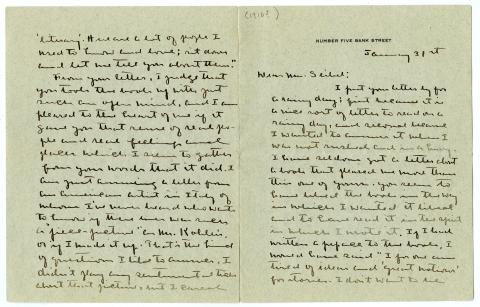 (1916?)
NUMBER FIVE BANK STREET
January 31st
Dear Mr. Seibel:
I put your letter by for
a rainy day; first because it is
a nice sort of letter to read on a
rainy day, and second because
I wanted to answer it when I
was not rushed and in a hurry.
I have seldom got a letter about
a book that pleased me more than
this one of yours. You seem to
have liked the book in the way
in which I wanted it liked
and to have read it in the spirit
in which I wrote it. If I had
written a preface to the book, I
would have said "I for one am
tired of ideas and 'great notions'
for stories. I don't want to be
'literary'. Here are a lot of people I
used to know and love; sit down
and let me tell you about them."
From your letter, I judge that
you took the book up with just
such an open mind, and I am
pleased to the heart of me if it
gave you that sense of real peo-
ple and real feelings and
places which I seem to gather
from your words that it did. I
am just answering a letter from
an American artist in Italy of
whom I've never heard who wants
to know if there ever was such
a "piece-picture" as Mr. Kohler's
or if I made it up. That's the kind
of question I like to answer. I
didn't play any sentimental tricks
about that picture, but I